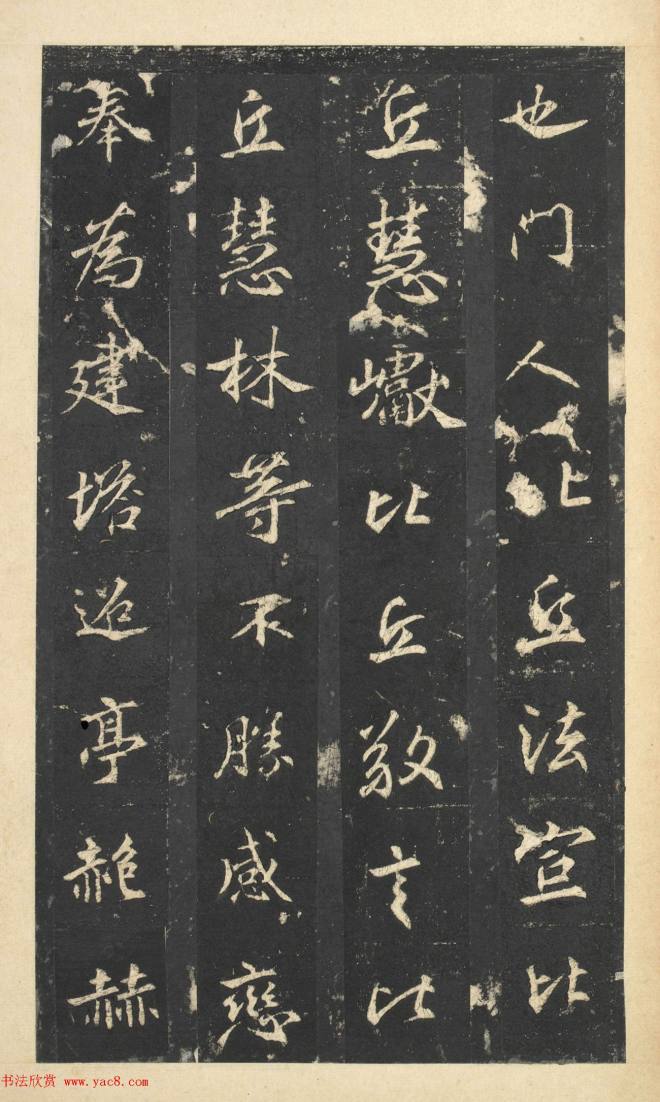 也門人比丘法宣比
丘慧巘比丘敬言比
丘慧林等不勝感戀
奉為建塔迢亭赩赫
书法欣赏 www.yac8.com